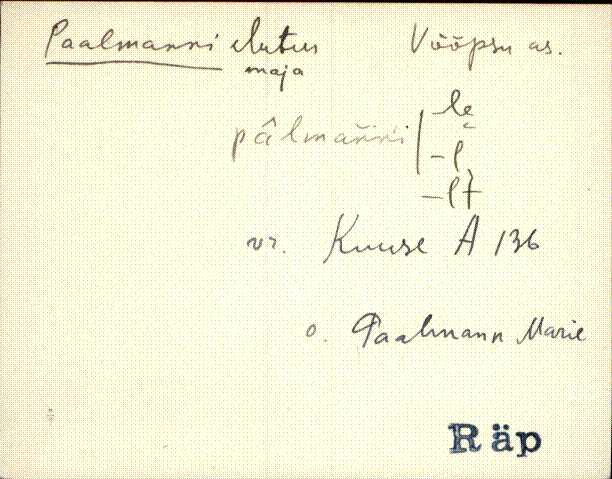 Paalmanni elutus Võõpsu as.
maja
pâlmańńi -le̬
-l
-lt
vr. Kuuse A 136
o. Paalmann Marie
Räp